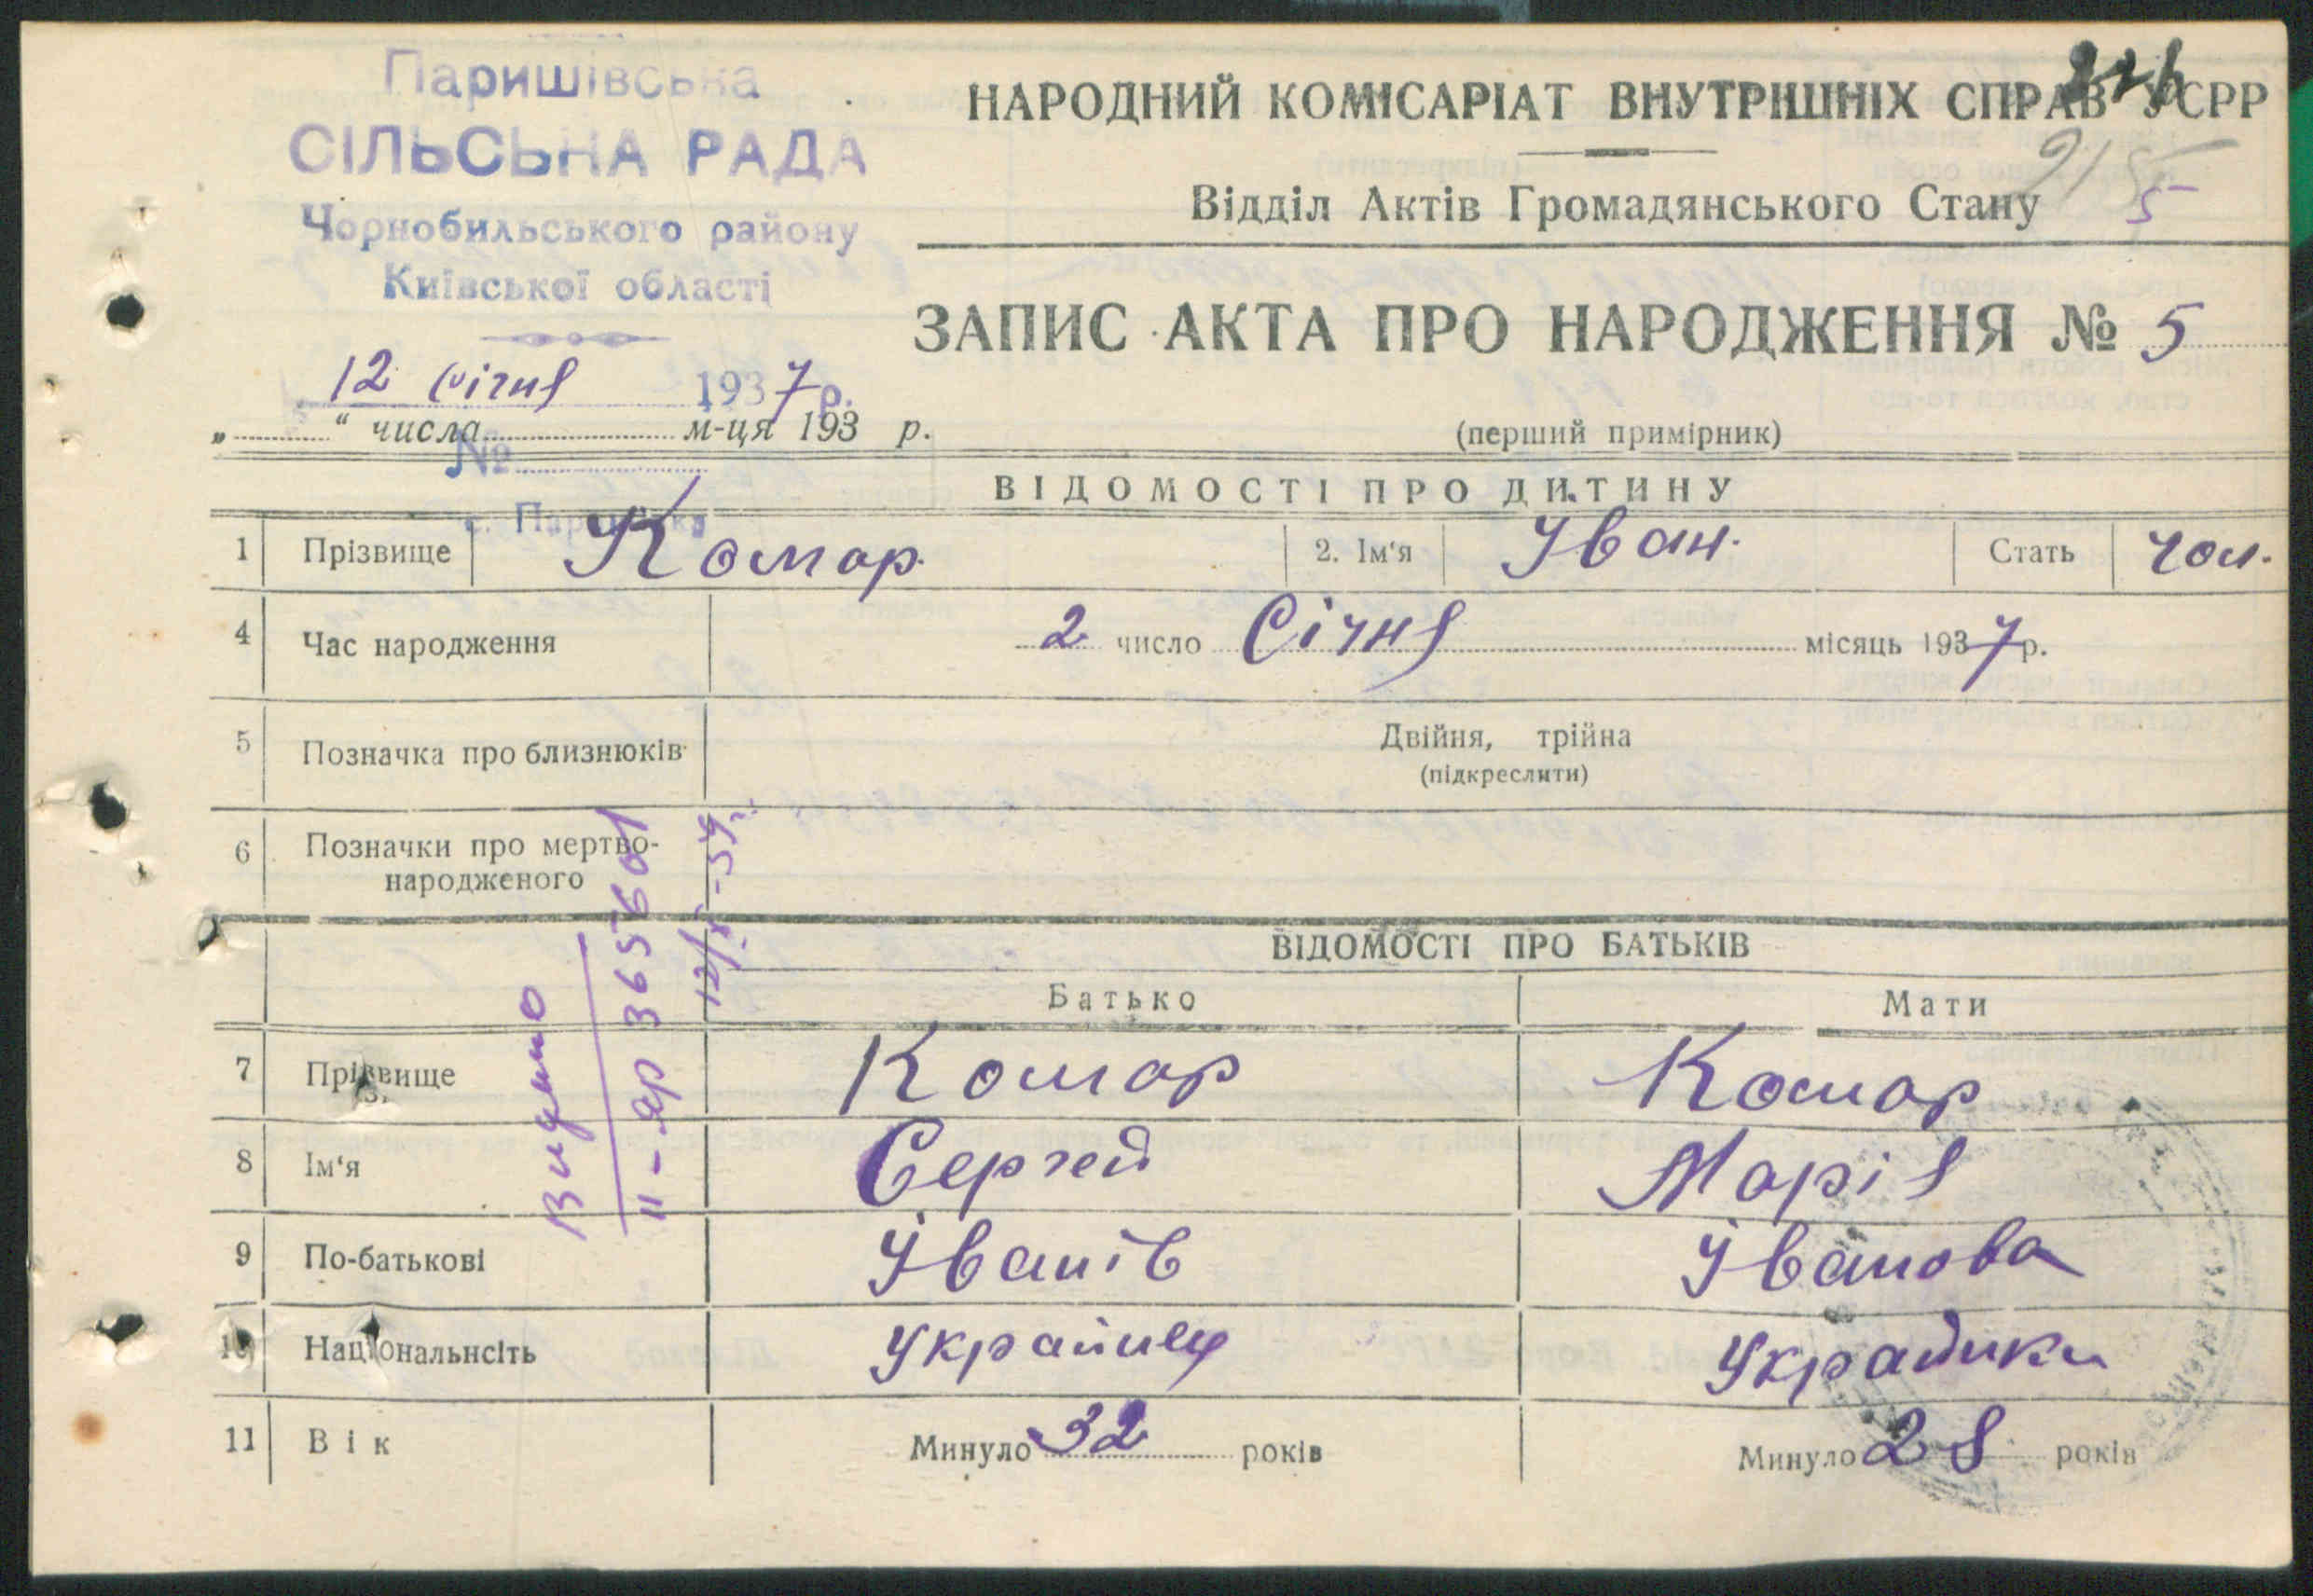 Паришівська
СІЛЬСЬКА РАДА
Чорнобильського району
Київської області
12 січня 1937 р.
„ “ числа м-ця 193 р.
№
с. Паришівка
НАРОДНИЙ КОМІСАРІАТ ВНУТРІШНІХ СПРАВ УСРР
Відділ Актів Громадянського Стану
5
ЗАПИС АКТА ПРО НАРОДЖЕННЯ № 5
(перший примірник)
ВІДОМОСТІ ПРО ДИТИНУ
1 Прізвище Комар 2. Ім‘я Іван Стать чол.
4 Час народження 2 число Січня місяць 1937 р.
5 Позначка про близнюків Двійня, трійна
(підкреслити)
6 Позначки про мертво-
народженого
ВІДОМОСТІ ПРО БАТЬКІВ
Батько Мати
7 Прізвище Комар Комар
8 Ім‘я Сергей Марія
9 По-батькові Іванів Іванова
10 Національнсіть Українец Украйнка
11 Вік Минуло 32 років Минуло 28 років
Видано
II-яр 3655601